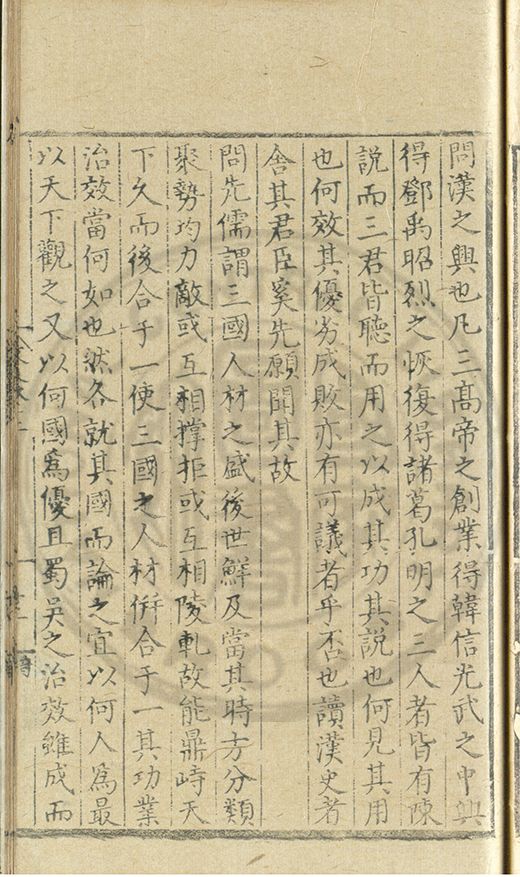 問漢之興也凡三髙帝之創業得韓信光武之中興
得鄧禹昭烈之恢復得諸葛孔明之三人者皆有陳
說而三君皆聽而用之以成其功其說也何見其用
也何效其優劣成敗亦有可議者乎否也讀漢史者
舍其君臣奚先願聞其故
問先儒謂三國人材之盛後世鮮及當其時方分類
聚勢均力敵或互相撑拒或互相陵軋故能鼎峙天
下久而後合于一使三國之人材倂合于一其功業
治效當何如也然各就其國而論之宜以何人爲最
以天下觀之又以何國爲優且蜀吳之治效雖成而